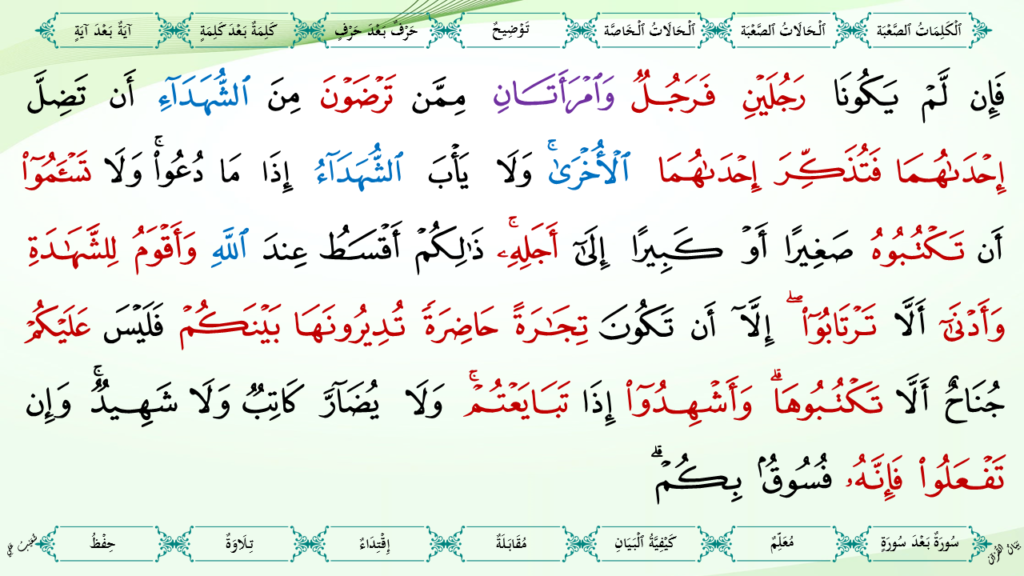 ٱلْكَلِمَاتُ ٱلصَّعْبَة ٱلْحَالَاتُ ٱلصَّعْبَة ٱلْحَالَاتُ ٱلْخَاصَّة تَوْضِيحٌ حَرْفٌ بَعْدَ حَرْفٍ كَلِمَةٌ بَعْدَ كَلِمَةٍ آيَةٌ بَعْدَ آيَةٍ
فَإِن لَّمْ يَكُونَا رَجُلَيْنِ فَرَجُلٌ وَٱمْرَأَتَانِ مِمَّن تَرْضَوْنَ مِنَ ٱلشُّهَدَآءِ أَن تَضِلَّ
إِحْدَىٰهُمَا فَتُذَكِّرَ إِحْدَىٰهُمَا ٱلْأُخْرَىٰۚ وَلَا يَأْبَ ٱلشُّهَدَآءُ إِذَا مَا دُعُوا۟ۚ وَلَا تَسْـَٔمُوٓا۟
أَن تَكْتُبُوهُ صَغِيرًا أَوْ كَبِيرًا إِلَىٰٓ أَجَلِهِۦۚ ذَٰلِكُمْ أَقْسَطُ عِندَ ٱللَّهِ وَأَقْوَمُ لِلشَّهَٰدَةِ
وَأَدْنَىٰٓ أَلَّا تَرْتَابُوٓا۟ۖ إِلَّآ أَن تَكُونَ تِجَٰرَةً حَاضِرَةً تُدِيرُونَهَا بَيْنَكُمْ فَلَيْسَ عَلَيْكُمْ
جُنَاحٌ أَلَّا تَكْتُبُوهَاۗ وَأَشْهِدُوٓا۟ إِذَا تَبَايَعْتُمْۚ وَلَا يُضَآرَّ كَاتِبٌ وَلَا شَهِيدٌۚ وَإِن
تَفْعَلُوا۟ فَإِنَّهُۥ فُسُوقٌۢ بِكُمْۗ
سُورَةٌ بَعْدَ سُورَةٍ مُعَلِّمٌ كَيْفِيَّةُ ٱلْبَيَانِ مُقَابَلَةٌ إِقْتِدَاءٌ تِلَاوَةٌ حِفْظٌ